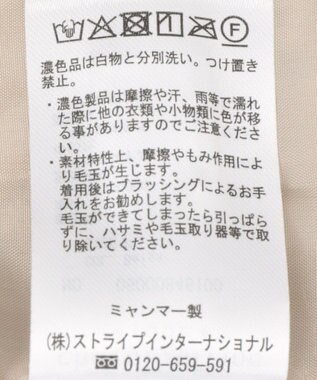 濃色品は白物と分別洗い。つけ置き
禁止。
・濃色製品は摩擦や汗、雨等で濡れ
た際に他の衣類や小物類に色が移
る事がありますのでご注意くださ
い。
・素材特性上、摩擦やもみ作用によ
り毛玉が生じます。
着用後はブラッシングによるお手
入れをお勧めします。
毛玉ができてしまったら引っぱら
ずに、ハサミや毛玉取り器等で取
り除いてください。
ミャンマー製
(株)ストライプインターナショナル
0120-659-591